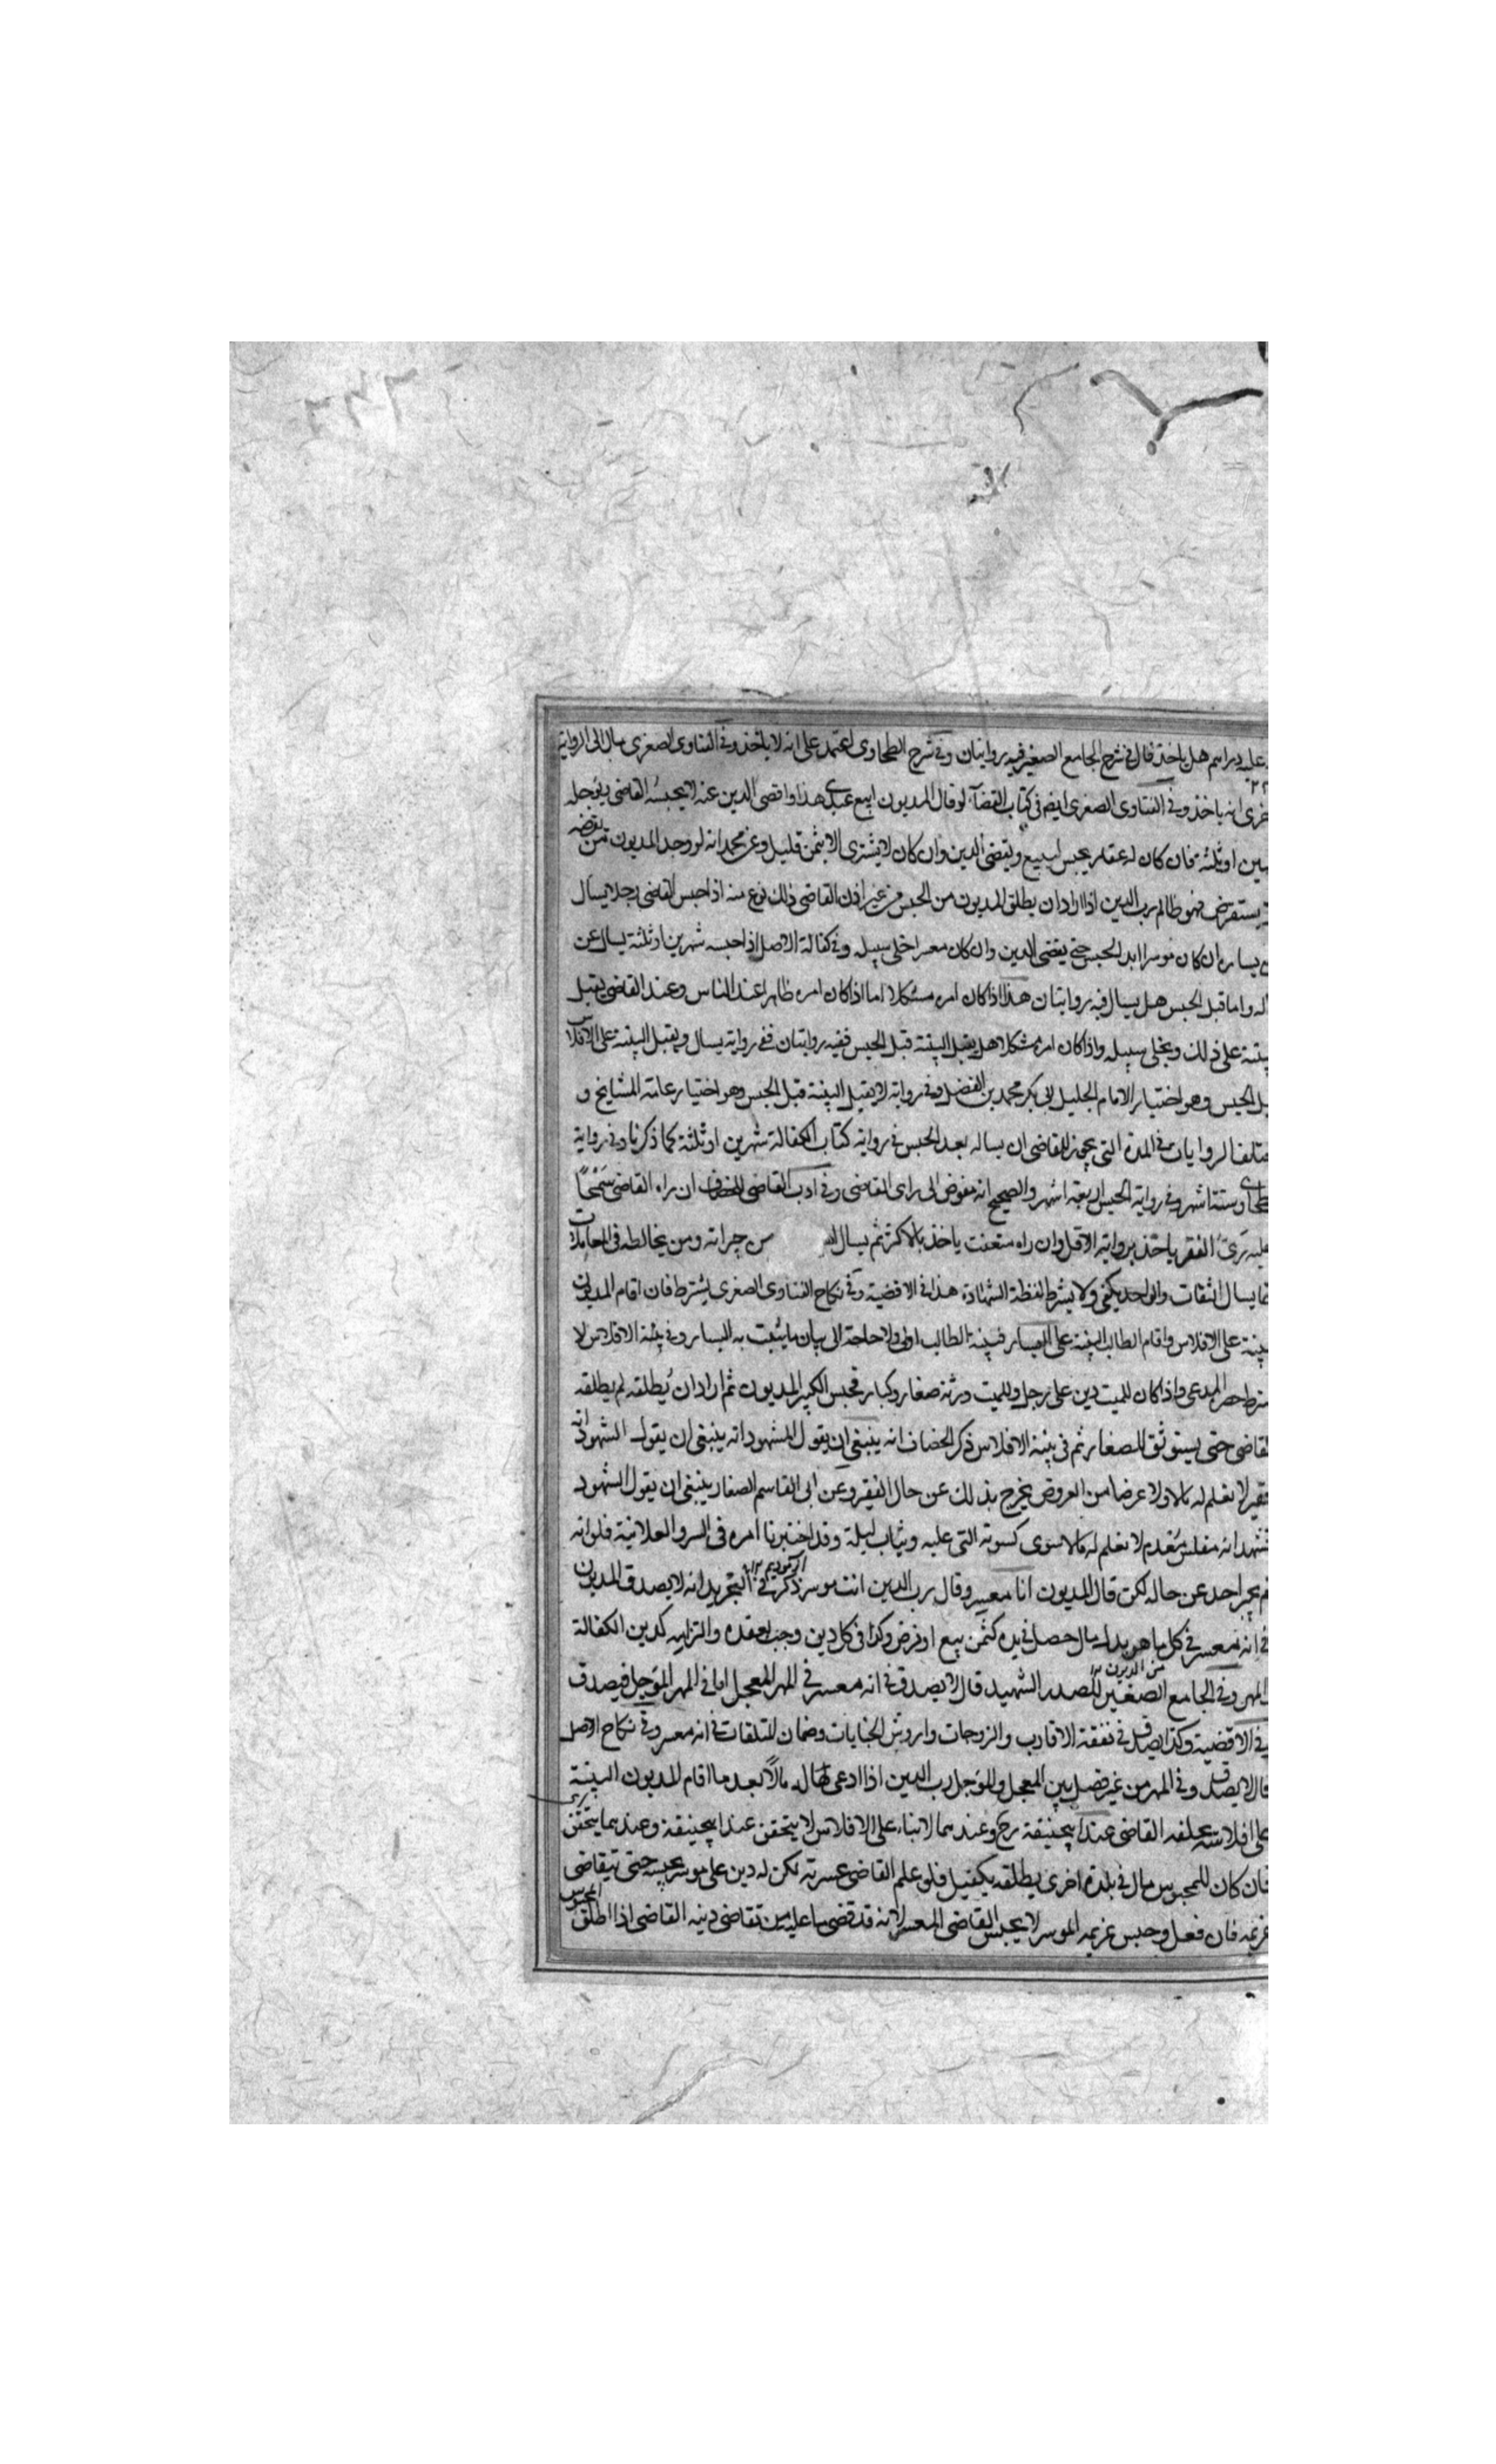 عليه دراهم هل ياخذ قال في شرح الجامع الصغير فيه روايتان وفي شرح الطحاوي اعتمد على انه لا ياخذ وفي الفتاوى الصغرى مال الى الرواية
انه ياخذ وفي الفتاوى الصغرى ايضا في كتاب القضاء لو قال المديون ابيع عبدى هذا واقضى الدين عنه لا يحبسه القاضى ويؤجله
او ثلثة فان كان له عقار يحبس ليبيع ويقضى الدين وان كان لا يشترى الا بثمن قليل وعن محمد انه لو وجد المديون من يقرضه
يستقرض فهو ظالم رب الدين اذا اراد ان يطلق المديون من الحبس من غير اذن القاضى ذلك نوع منه اذا حبس القاضى رجلا يسال
يساره ان كان موسرا ابد الحبس حتى يقضى الدين وان كان معسرا خلى سبيله وفي كفالة الاصل اذا حبسه شهرين او ثلثة يسال عن
واما قبل الحبس هل يسال فيه روايتان هذا اذا كان امره مشكلا اما اذا كان امره ظاهرا عند الناس وعند القاضى يقبل
على ذلك ويخلى سبيله واذا كان امره مشكلا هل يقبل البينة قبل الحبس ففيه روايتان ففي رواية يسال ويقبل البينة على الافلاس
الحبس وهو اختيار الامام الجليل ابى بكر محمد بن الفضل وفي رواية لا يقبل البينة قبل الحبس وهو اختيار عامة المشايخ و
الروايات في المدة التى يجوز للقاضى ان يساله بعد الحبس في رواية كتاب الكفالة شهرين او ثلثة كما ذكرنا وفي رواية
ستة اشهر وفي رواية الحسن اربعة اشهر والصحيح انه مفوض الى راى القاضى وفي ادب القاضى للخصاف ان راه القاضى سمحا
الفقر ياخذ برواية الاقل وان راه متعنت ياخذ بالاكثر ثم يسال من جيرانه ومن يخالطه في المعاملات
يسال الثقات والواحد يكفى ولا يشترط لفظة الشهادة هذا في الاقضية وفي نكاح الفتاوى الصغرى يشترط فان اقام المديون
على الافلاس واقام الطالب البينة على اليسار فبينة الطالب اولى ولا حاجة الى بيان ما يثبت به اليسار وفي بينة الافلاس لا
المدعى واذا كان للميت دين على رجل وللميت ورثة صغار وكبار فحبس الكبير المديون ثم اراد ان يطلقه لم يطلقه
القاضى حتى يستوثق للصغار ثم في بينة الافلاس ذكر الخصاف انه ينبغى ان يقول المشهود انه ينبغى ان يقول الشهود انه
فقير لا نعلم له مالا ولا عرضا من العروض يخرج بذلك عن حال الفقير وعن ابى القاسم الصفار ينبغى ان يقول الشهود
نشهد انه مفلس معدم لا نعلم له مالا سوى كسوته التى عليه وثياب ليلة وقد اختبرنا امره في السر والعلانية فلو انه
لم يخبر احد عن حاله لكن قال المديون انا معسر وقال رب الدين انت موسر ذكر في التجريد انه لا يصدق المديون
في انه معسر في كل ما هو بدل مال حصل في يده كثمن بيع او قرض وكذا في كل دين وجب بعقده والتزامه كدين الكفالة
والمهر وفي الجامع الصغير للصدر الشهيد قال لا يصدق في انه معسر في المهر المعجل اما في المهر المؤجل فيصدق
من الديون
في الاقضية وكذا يصدق في نفقة الاقارب والزوجات واروش الجنايات وضمان المتلفات في انه معسر وفي نكاح الاصل
قال لا يصدق وفي المهر من غير فصل بين المعجل والمؤجل رب الدين اذا ادعى مالا بعد ما اقام المديون البينة
على افلاسه يحلفه القاضى عند ابيحنيفة رح وعندهما لا بناء على ان الافلاس لا يتحقق عند ابيحنيفة وعندهما يتحقق
فان كان للمحبوس مال في بلدة اخرى يطلقه بكفيل فلو علم القاضى عسرته لكن له دين على موسر يحبسه حتى يتقاضى
غريمه فان فعل وحبس غريمه الموسر لا يحبس القاضى المعسر لانه قد قضى ما عليه من تقاضى دينه القاضى اذا اطلق المحبوس